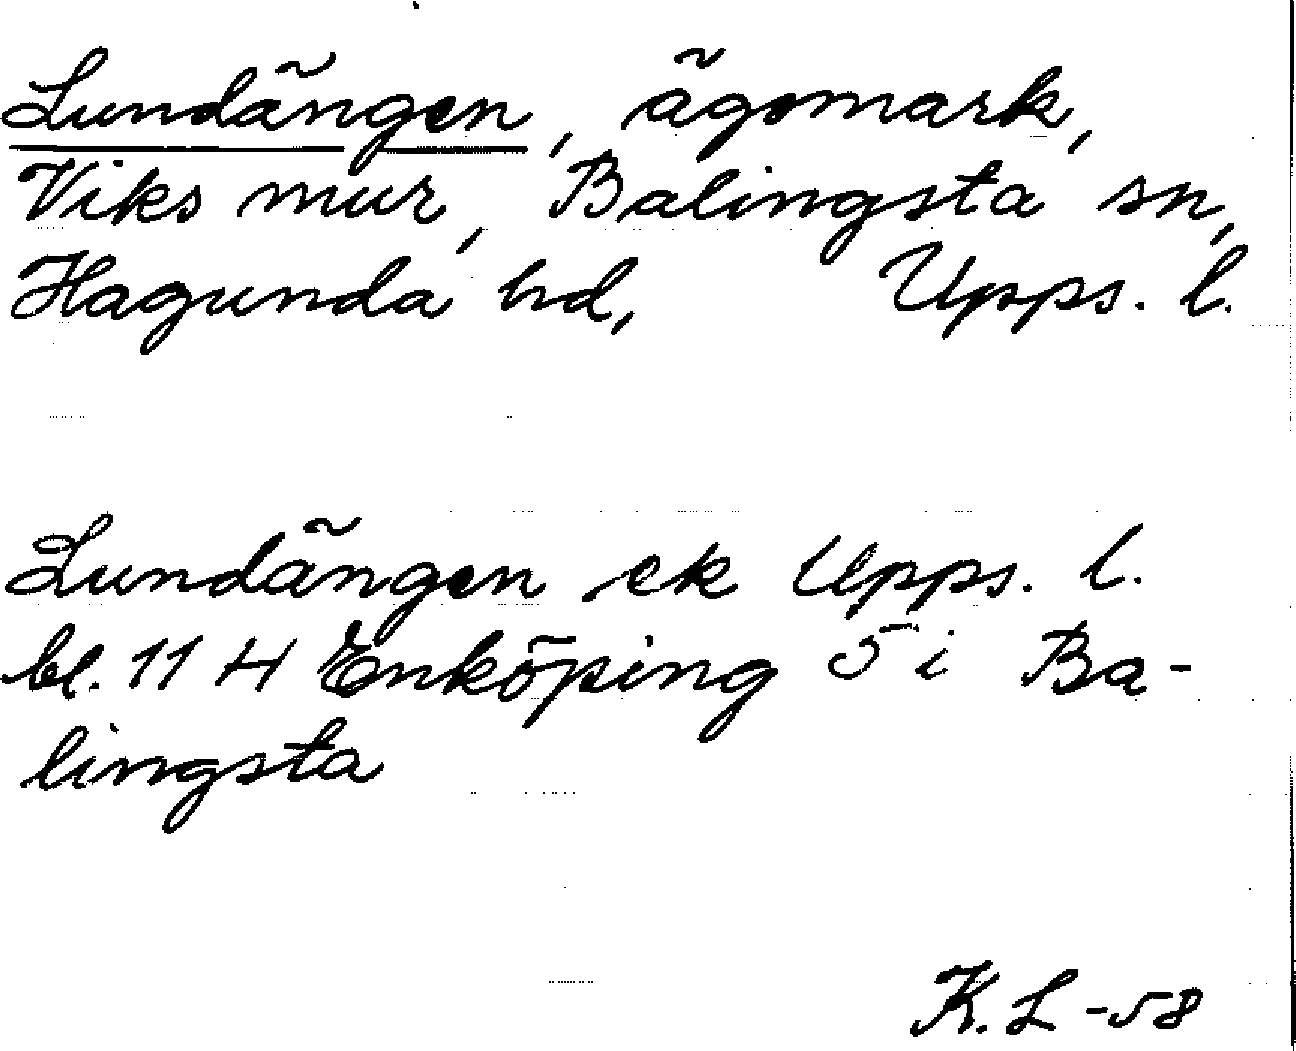 Lundängen, ägomark,
Viks mur, Balingsta sn,
Hagunda hd, Upps. l.
Lundängen ek Upps. l.
bl. 11 H Enköping 5 i Ba-
lingsta
K. L -58